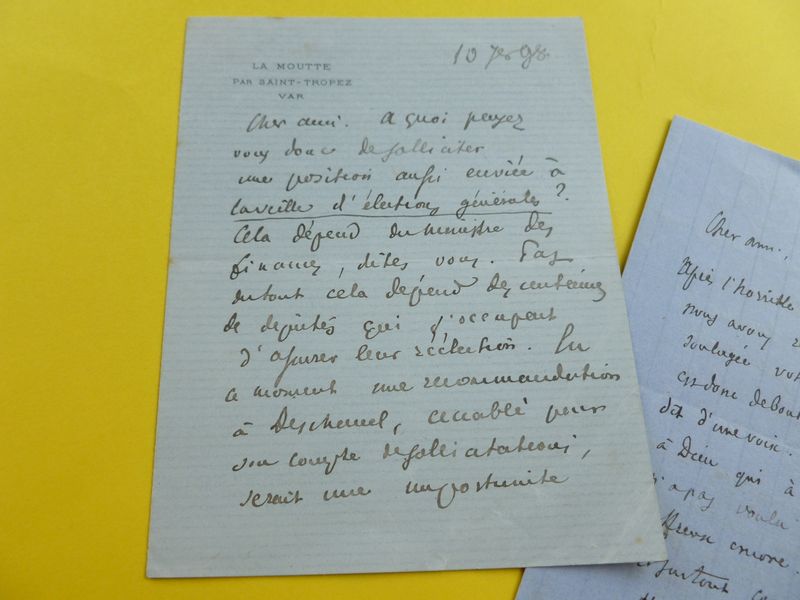 LA MOUTTE
PAR SAINT-TROPEZ
VAR
10 98
Cher ami. A quoi pensez
vous donc de solliciter
une position aussi enviée à
la veille d'élections générales ?
Cela dépend du ministre des
finances, dites vous. Pas
du tout cela dépend des centaines
de députés qui s'occupent
d'assurer leur réélection. En
ce moment une recommandation
à Deschanel, accablé pour
son compte de sollicitations,
serait une importunité
Cher ami,
Après l'horrible
nous avons
soulagée
est donc debout
dit d'une voix.
à Dieu qui à
n'a pas voulu
encore.
et surtout